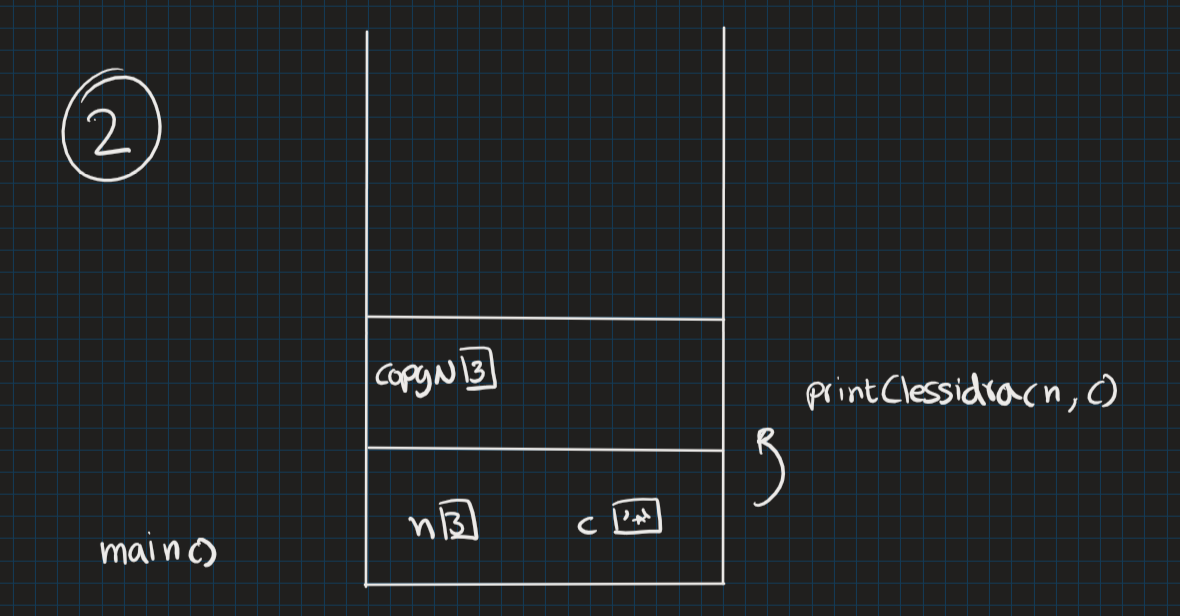 2
copyN 3
printClessidra(n, c)
n 3
c '*'
main()